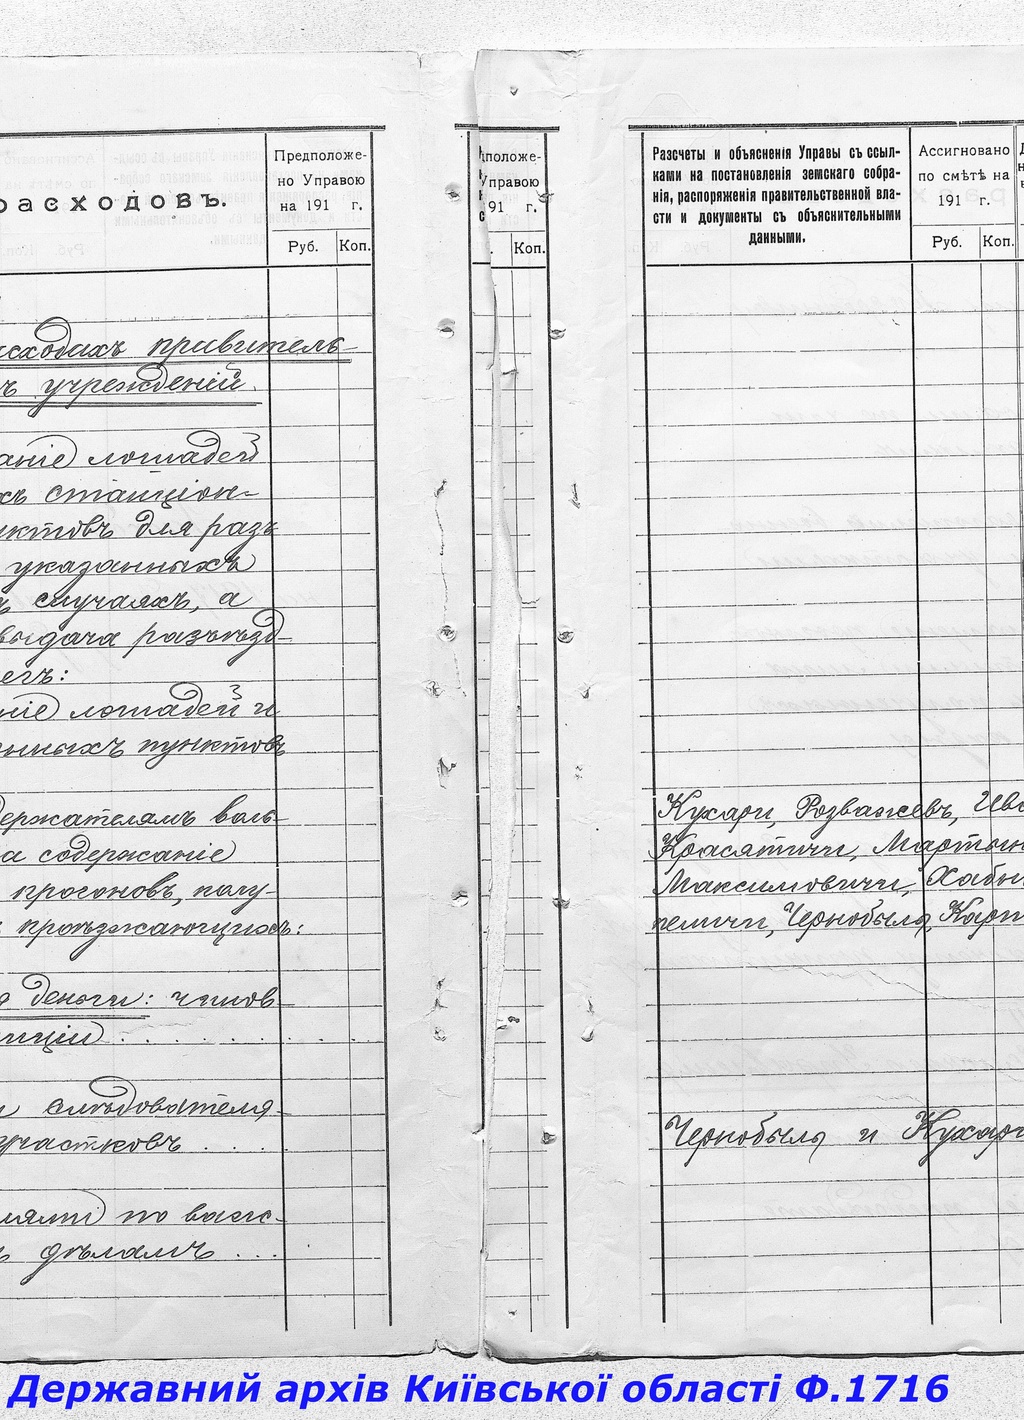 расходовъ.
Предположе-
но Управою
на 191 г.
Руб. Коп.
правитель-
учрежденій.
лошадей
станціон-
для разъ
указанныхъ
случаяхъ, а
выдача разъѣзд-
лошадей и
пунктовъ
держателямъ воль-
содержаніе
прогоновъ, полу-
проѣзжающихъ:
деньги: чинов-
слѣдователя
участковъ . . .
по
дѣламъ . . .
дположе-
Управою
91 г.
Коп.
Разсчеты и объясненія Управы съ ссыл-
ками на постановленія земскаго собра-
нія, распоряженія правительственной вла-
сти и документы съ объяснительными
данными.
Ассигновано
по смѣтѣ на
191 г.
Руб. Коп.
Кухари, Розважевъ, Ива
Красятичи, Мартын
Максимовичи, Хабн
пеличи, Чернобыль, Карп
Чернобыль и Кухари
Державний архів Київської області Ф.1716